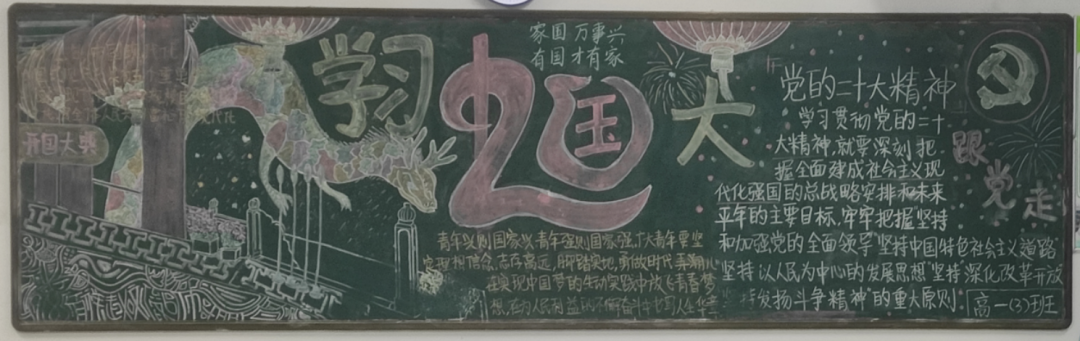 开国大典
学习
二十大
家国万事兴
有国才有家
青年兴则国家兴,青年强则国家强,广大青年要坚
定理想信念,志存高远,脚踏实地,勇做时代弄潮儿
在实现中国梦的生动实践中放飞青春梦
想,在为人民利益的不懈奋斗中书写人生华章
党的二十大精神
学习贯彻党的二十
大精神,就要深刻把
握全面建成社会主义现
代化强国的总战略安排和未来
五年的主要目标,牢牢把握坚持
和加强党的全面领导"坚持中国特色社会主义道路
坚持以人民为中心的发展思想"坚持深化改革开放
坚持发扬斗争精神"的重大原则
跟党走
高一(3)班